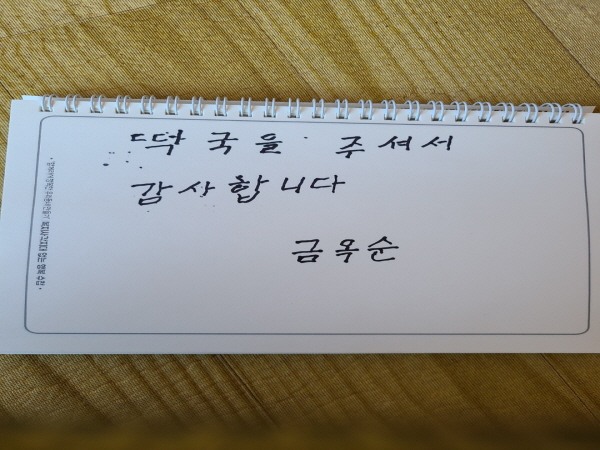 떡국을 주셔서
감사합니다
금옥순